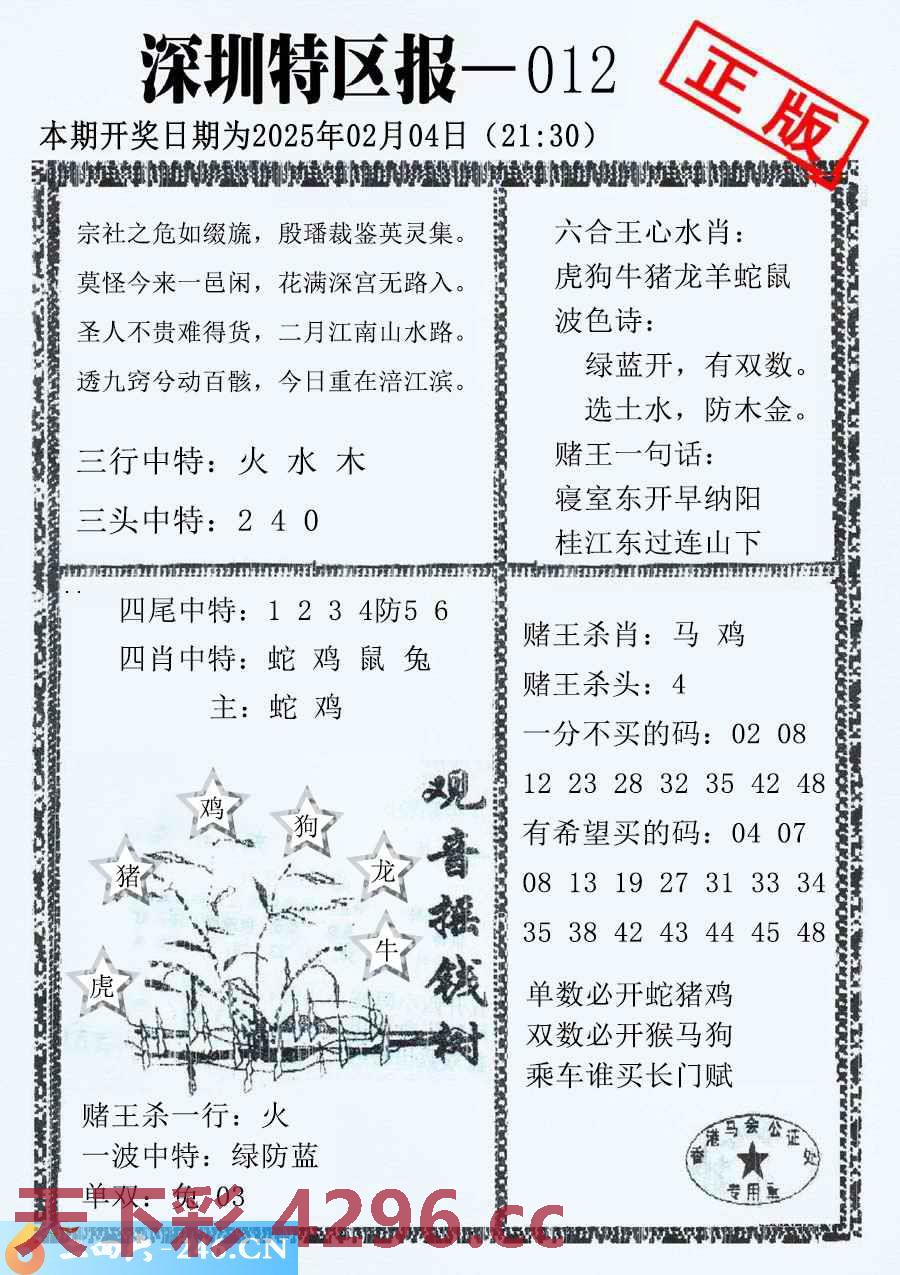 深圳特区报—012
正版
本期开奖日期为2025年02月04日（21:30）
宗社之危如缀旒，殷璠裁鉴英灵集。
莫怪今来一邑闲，花满深宫无路入。
圣人不贵难得货，二月江南山水路。
透九窍兮动百骸，今日重在涪江滨。
三行中特：火 水 木
三头中特：2 4 0
六合王心水肖：
虎狗牛猪龙羊蛇鼠
波色诗：
绿蓝开，有双数。
选土水，防木金。
赌王一句话：
寝室东开早纳阳
桂江东过连山下
四尾中特：1 2 3 4防5 6
四肖中特：蛇 鸡 鼠 兔
主：蛇 鸡
观音摇钱树
鸡
狗
猪
龙
牛
虎
赌王杀一行：火
一波中特：绿防蓝
单双：兔 03
赌王杀肖：马 鸡
赌王杀头：4
一分不买的码：02 08
12 23 28 32 35 42 48
有希望买的码：04 07
08 13 19 27 31 33 34
35 38 42 43 44 45 48
单数必开蛇猪鸡
双数必开猴马狗
乘车谁买长门赋
香港马会公证处
专用章
天下彩 4296.cc